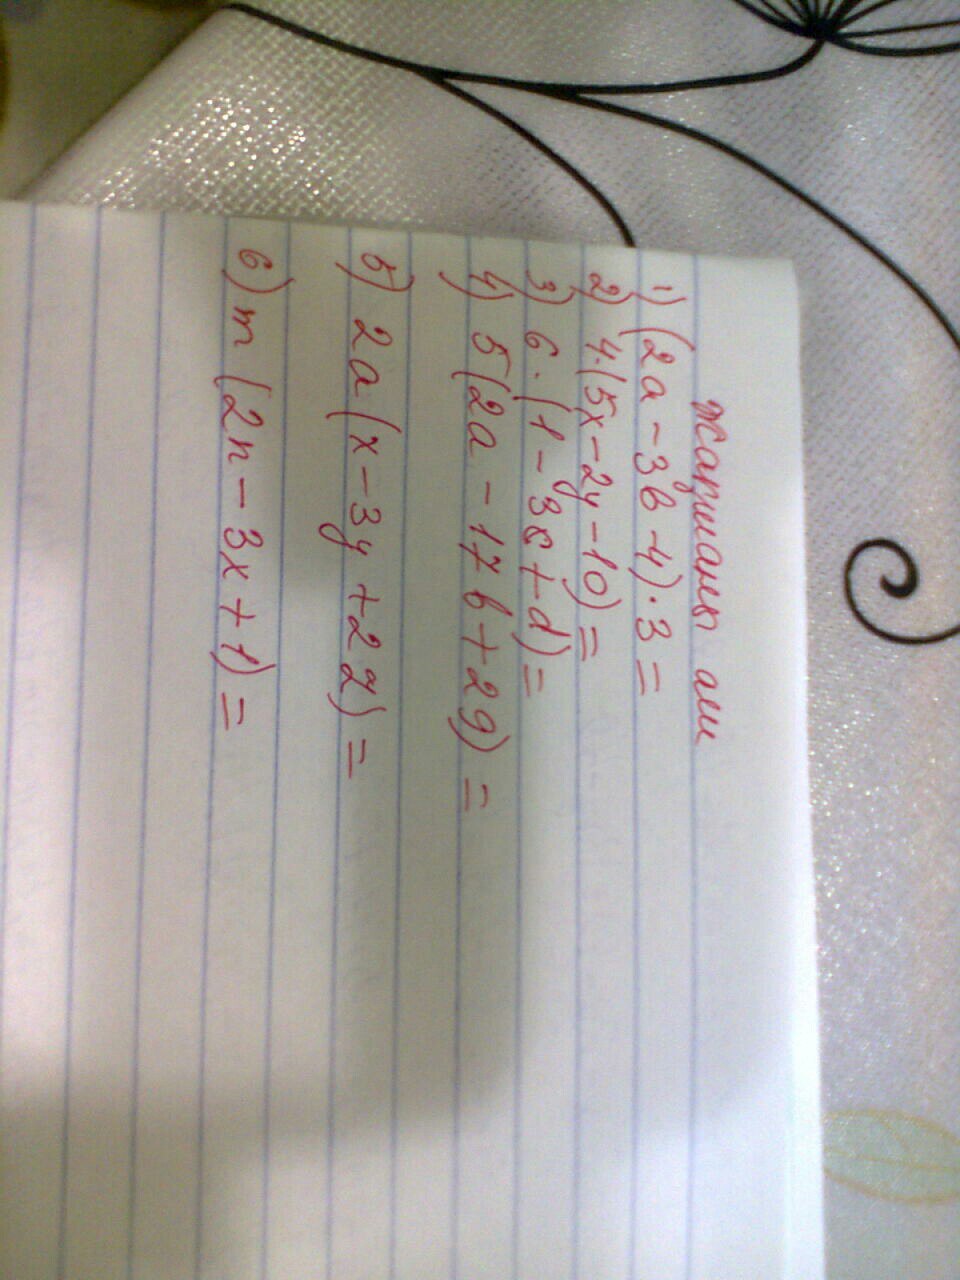 Жақшаны аш
1) (2a - 3b - 4) · 3 =
2) 4 · (5x - 2y - 10) =
3) 6 · (1 - 3c + d) =
4) 5 (2a - 17b + 2g) =
5) 2a (x - 3y + 2z) =
6) m (2n - 3x + 1) =